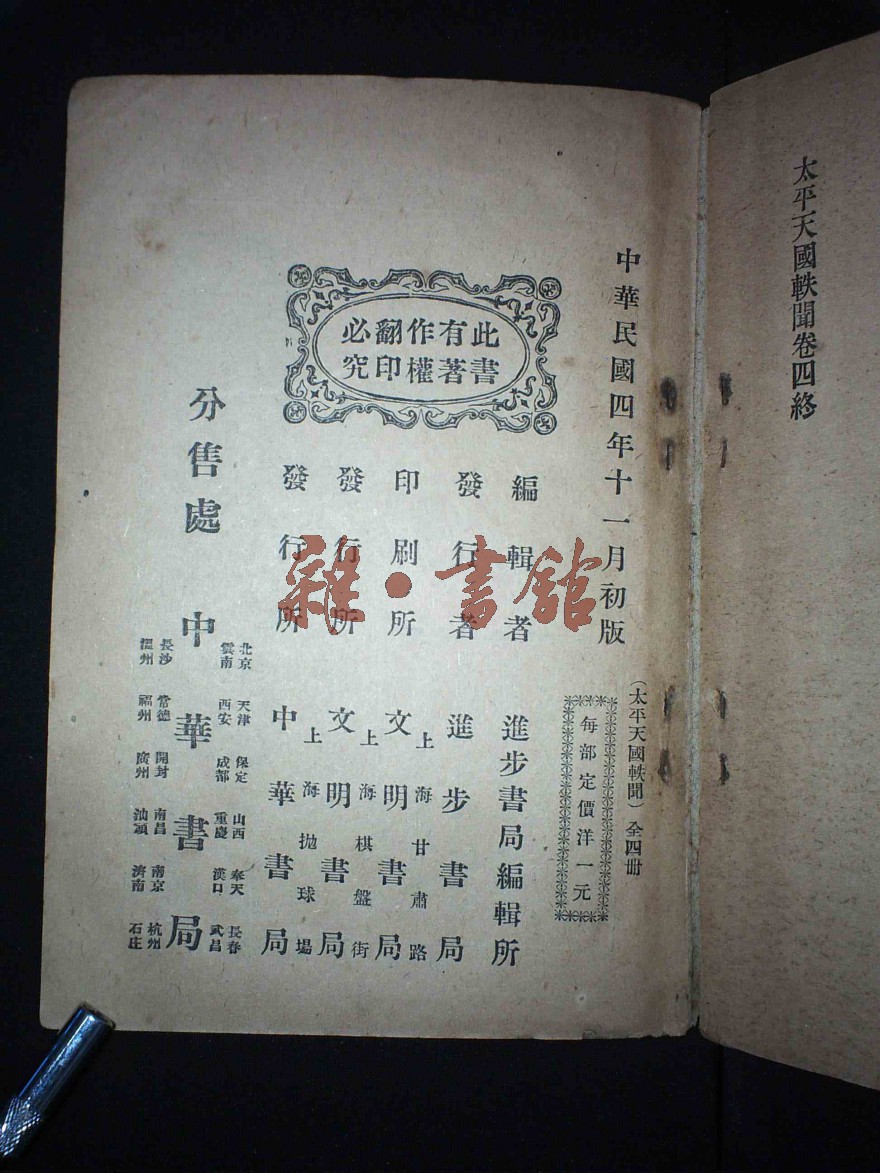 太平天國軼聞卷四終
中華民國四年十一月初版
（太平天國軼聞）全四冊
每部定價洋一元
此書有著作權翻印必究
編輯者 進步書局編輯所
發行者 進步書局
印刷所 上海甘肅路 文明書局
發行所 上海棋盤街 文明書局
發行所 上海拋球場 中華書局
分售處 中華書局
北京 天津 保定 山西 奉天 長春
雲南 西安 成都 重慶 漢口 武昌
長沙 常德 開封 南昌 南京 杭州
溫州 福州 廣州 汕頭 濟南 石庄
雜·書館